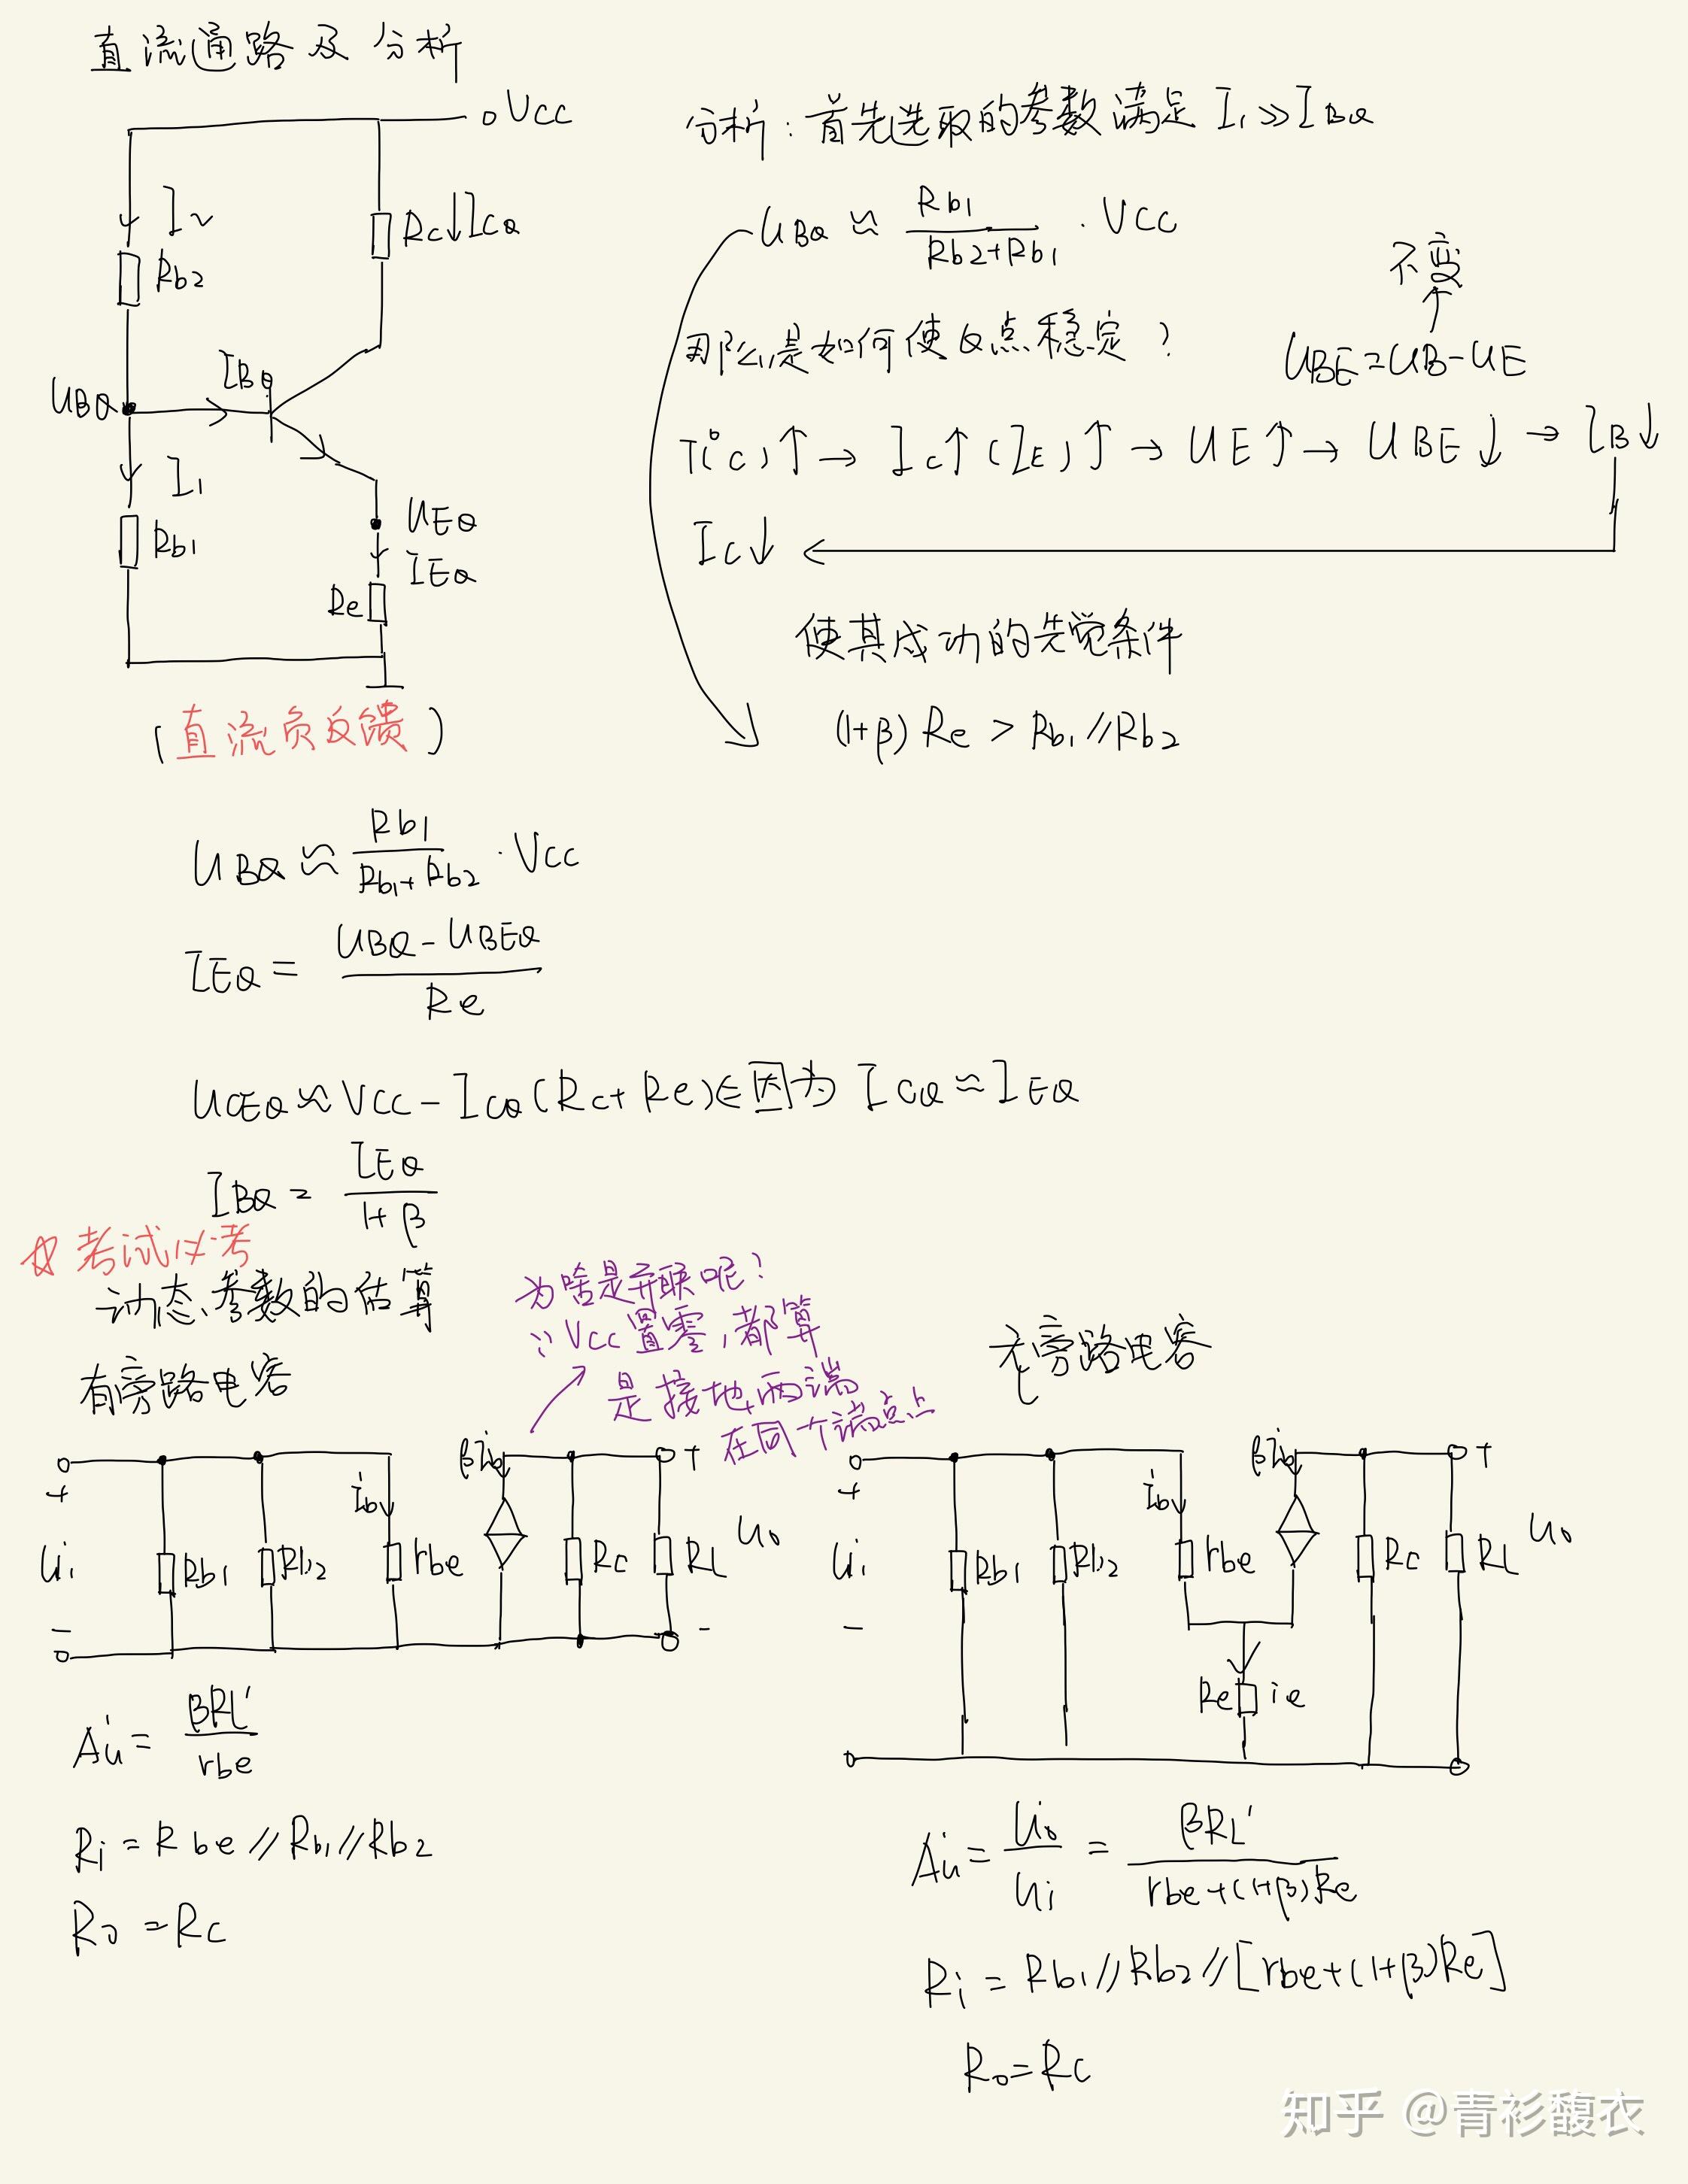 直流通路及分析
VCC
I2
Rb2
Rc↓ICQ
UBQ
IBQ
I1
Rb1
UEQ
IEQ
Re
(直流负反馈)
分析：首先选取的参数满足 I1>>IBQ
UBQ ≈ Rb1/(Rb2+Rb1) · VCC
那么是如何使Q点稳定？
不变
↑
UBE=UB-UE
T(°C)↑→ Ic↑(IE)↑→ UE↑→ UBE↓→ IB↓
Ic↓ ←
使其成功的先觉条件
(1+β) Re > Rb1//Rb2
UBQ ≈ Rb1/(Rb1+Rb2) · VCC
IEQ = (UBQ-UBEQ)/Re
UCEQ≈VCC-ICQ(Rc+Re)∈因为 ICQ≈IEQ
IBQ = IEQ/(1+β)
☆考试必考
动态参数的估算
有旁路电容
为啥是并联呢？
∵VCC置零，都算
是接地，两端
在同一个端点上
无旁路电容
+
Ui
-
Rb1
Rb2
ib
rbe
βib
Rc
RL
+
Uo
-
Au = βRL'/rbe
Ri = Rbe//Rb1//Rb2
Ro = Rc
+
Ui
-
Rb1
Rb2
ib
rbe
βib
Rc
RL
+
Uo
Re
ie
Au = Uo/Ui = βRL'/(rbe+(1+β)Re)
Ri = Rb1//Rb2//[rbe+(1+β)Re]
Ro=Rc
知乎 @青衫馥衣